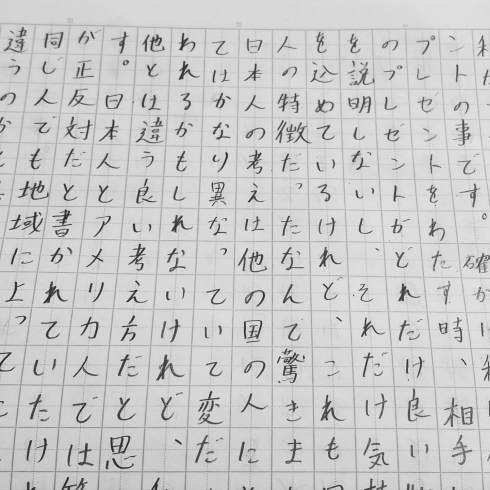 ントの事です。確か
プレゼントをわたす時、相手
のプレゼントがどれだけ良い
を説明しないし、それだけ気
を込めているけれど、これも
人の特徴だったなんで、驚きま
日本人の考えは他の国の人に
てはかなり異なっていて変だ
われるかもしれないけれど、
他とは違う良い考え方だと思
す。日本人とアメリカ人では
が正反対だと書かれていたけ
同じ人でも地域によって
違うのかと